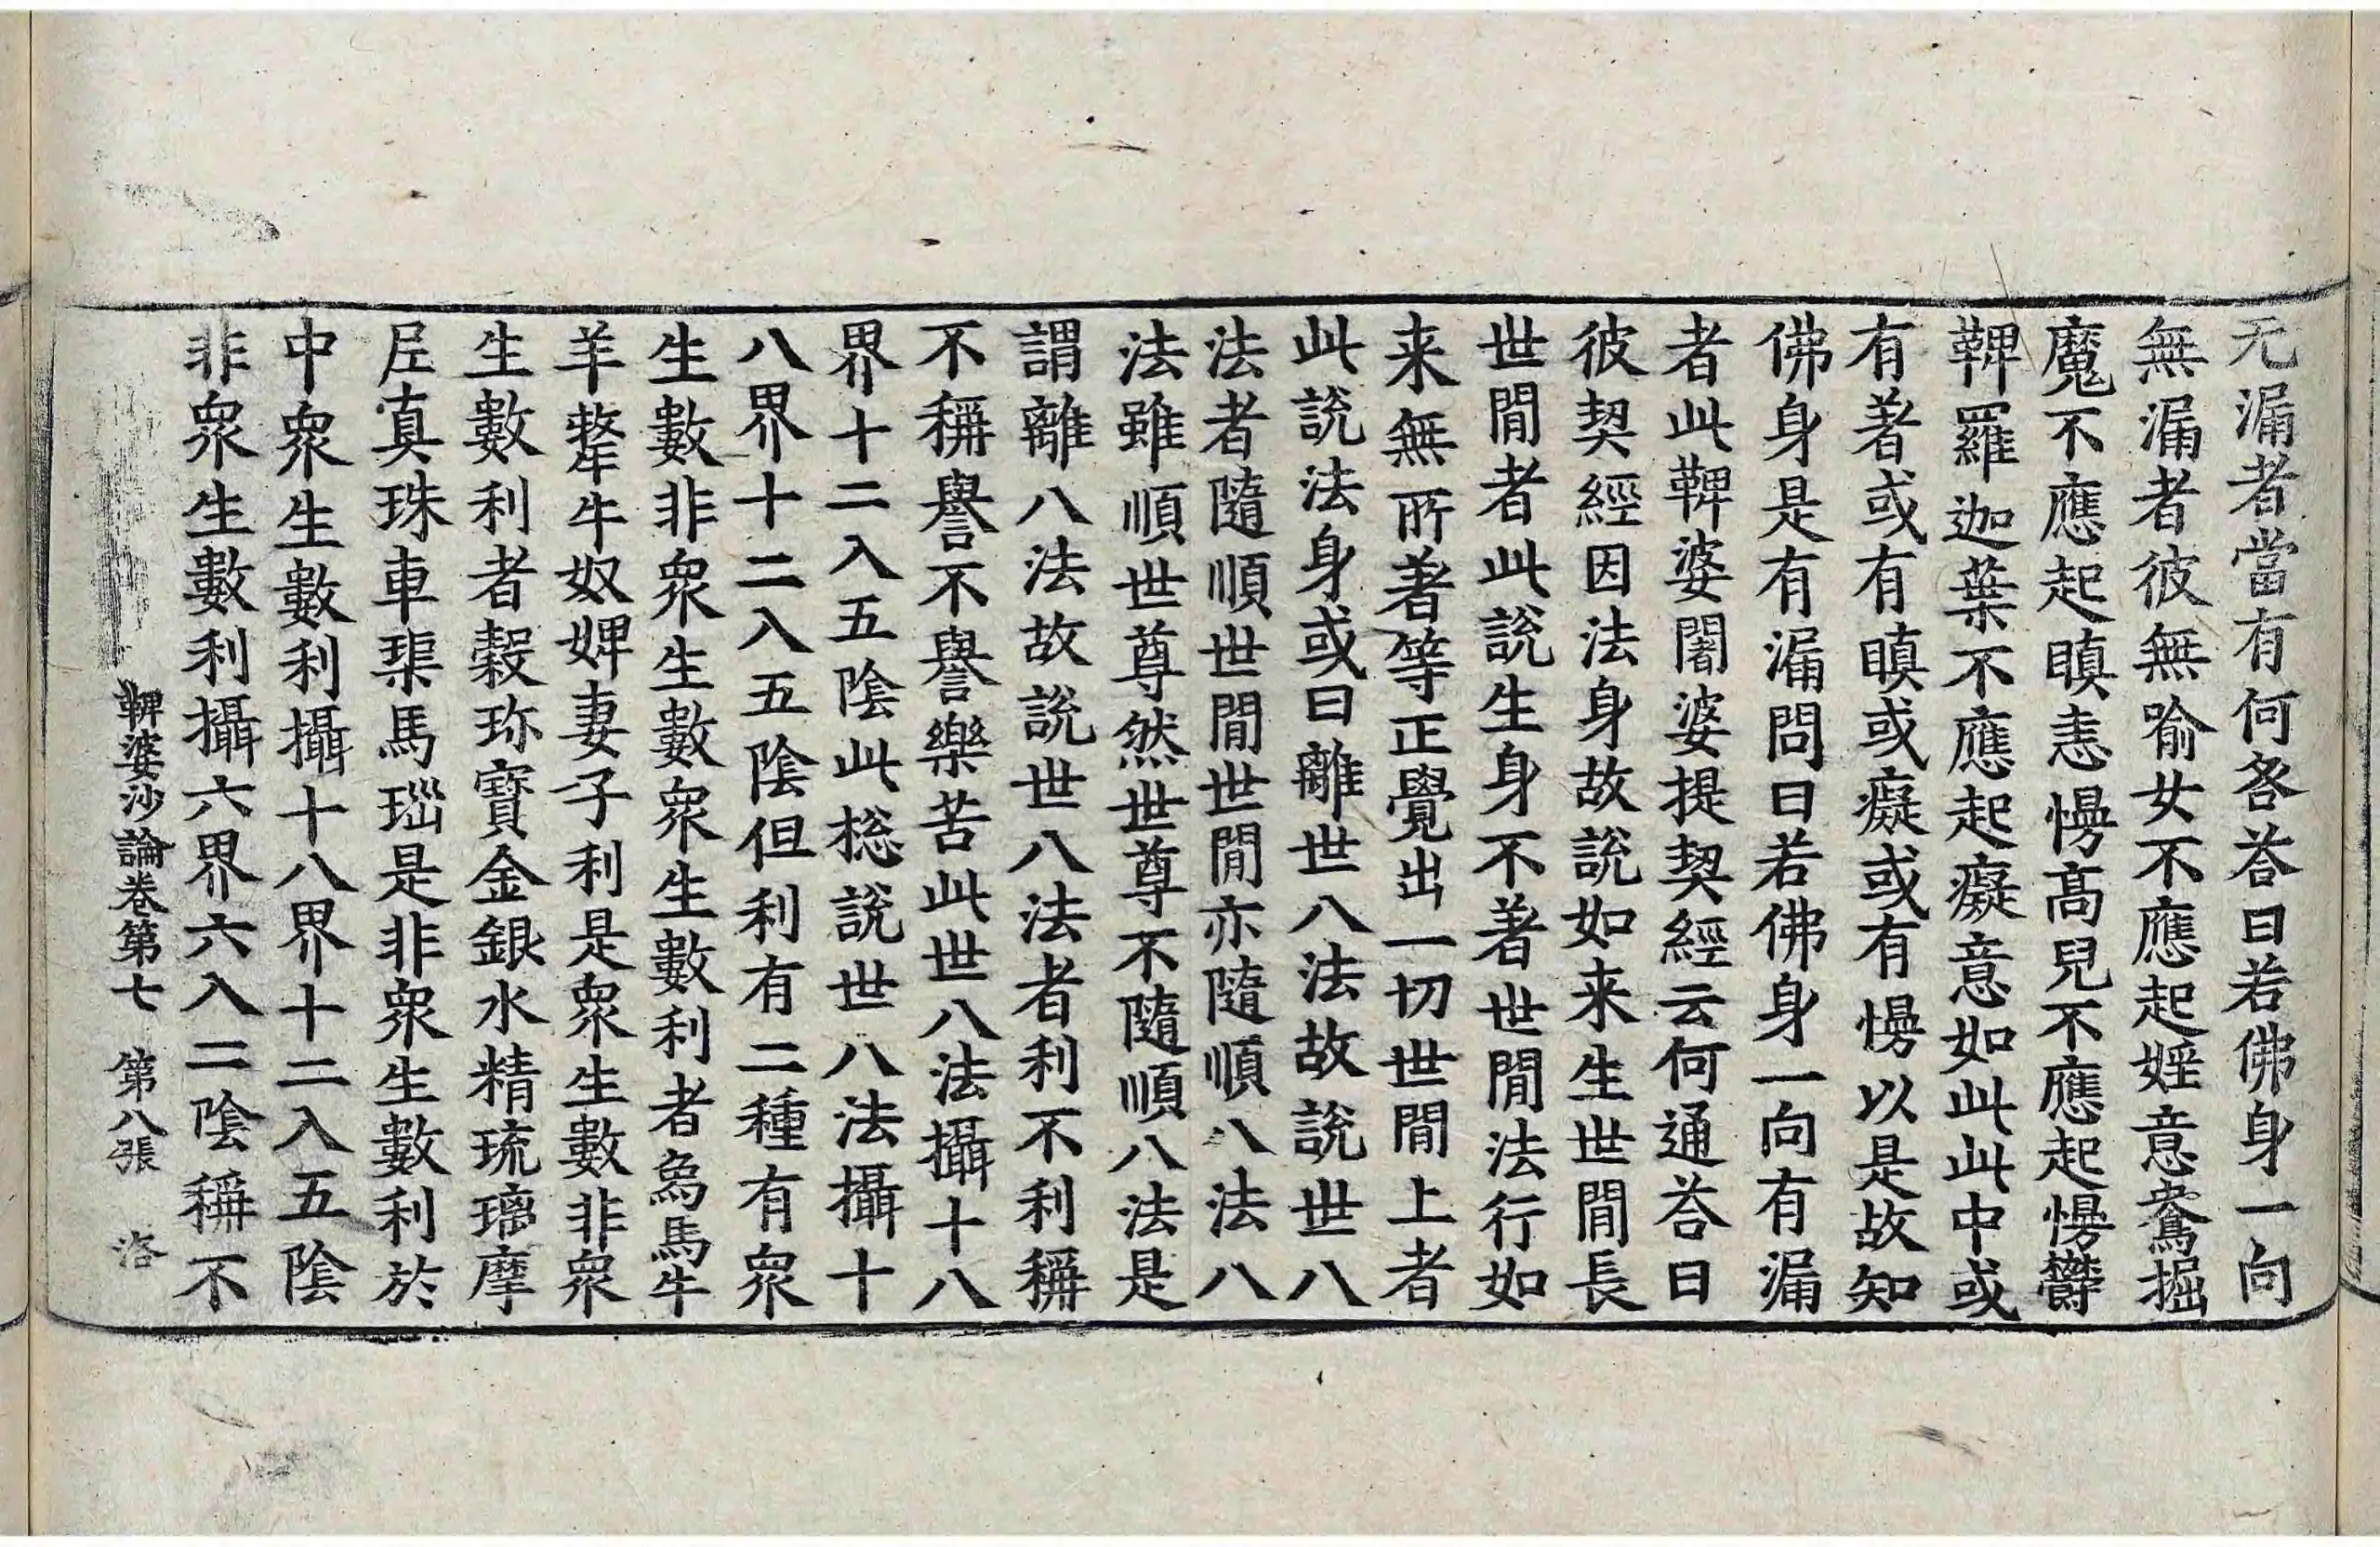 无漏者當有何咎荅曰若佛身一向
無漏者彼無喻女不應起婬意鴦掘
魔不應起瞋恚慢高兒不應起慢欝
鞞羅迦葉不應起癡意如此此中或
有著或有瞋或癡或有慢以是故知
佛身是有漏問曰若佛身一向有漏
者此鞞婆闍婆提契經云何通荅曰
彼契經因法身故說如来生世閒長
世閒者此說生身不著世閒法行如
来無所著等正覺出一切世閒上者
此說法身或曰離世八法故說世八
法者隨順世閒世閒亦隨順八法八
法雖順世尊然世尊不隨順八法是
謂離八法故說世八法者利不利稱
不稱譽不譽樂苦此世八法攝十八
界十二入五陰此揔說世八法攝十
八界十二入五陰但利有二種有衆
生數非衆生數衆生數利者烏馬牛
羊犛牛奴婢妻子利是衆生數非衆
生數利者穀珎寶金銀水精琉璃摩
𡰱真珠車𤦲馬瑙是非衆生數利於
中衆生數利攝十八界十二入五陰
非衆生數利攝六界六入二陰稱不
鞞婆沙論卷第七 第八張 洛